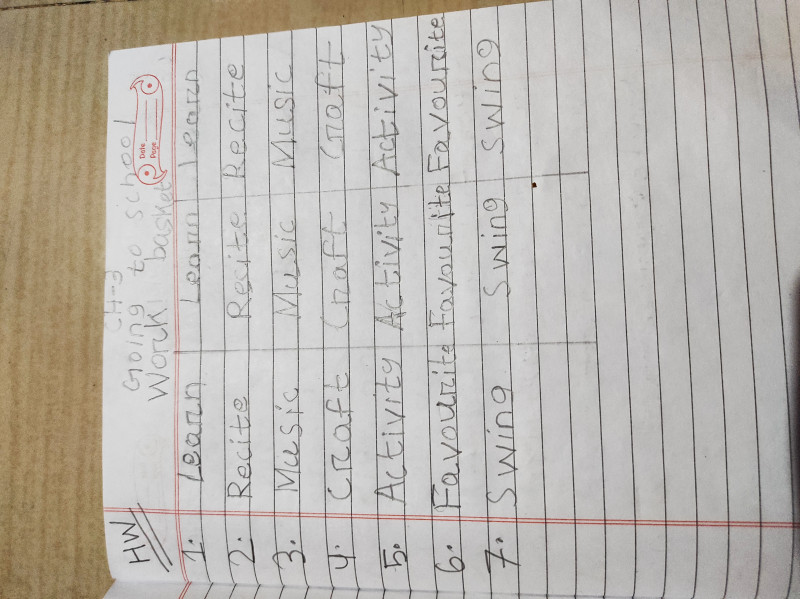 HW
CH-3
Going to school
Work basket
Date
Page
1. Learn Learn Learn
2. Recite Resite Recite
3. Music Music Music
4. Craft Craft Craft
5. Activity Activity Activity
6. Favourite Favourite Favourite
7. Swing Swing Swing